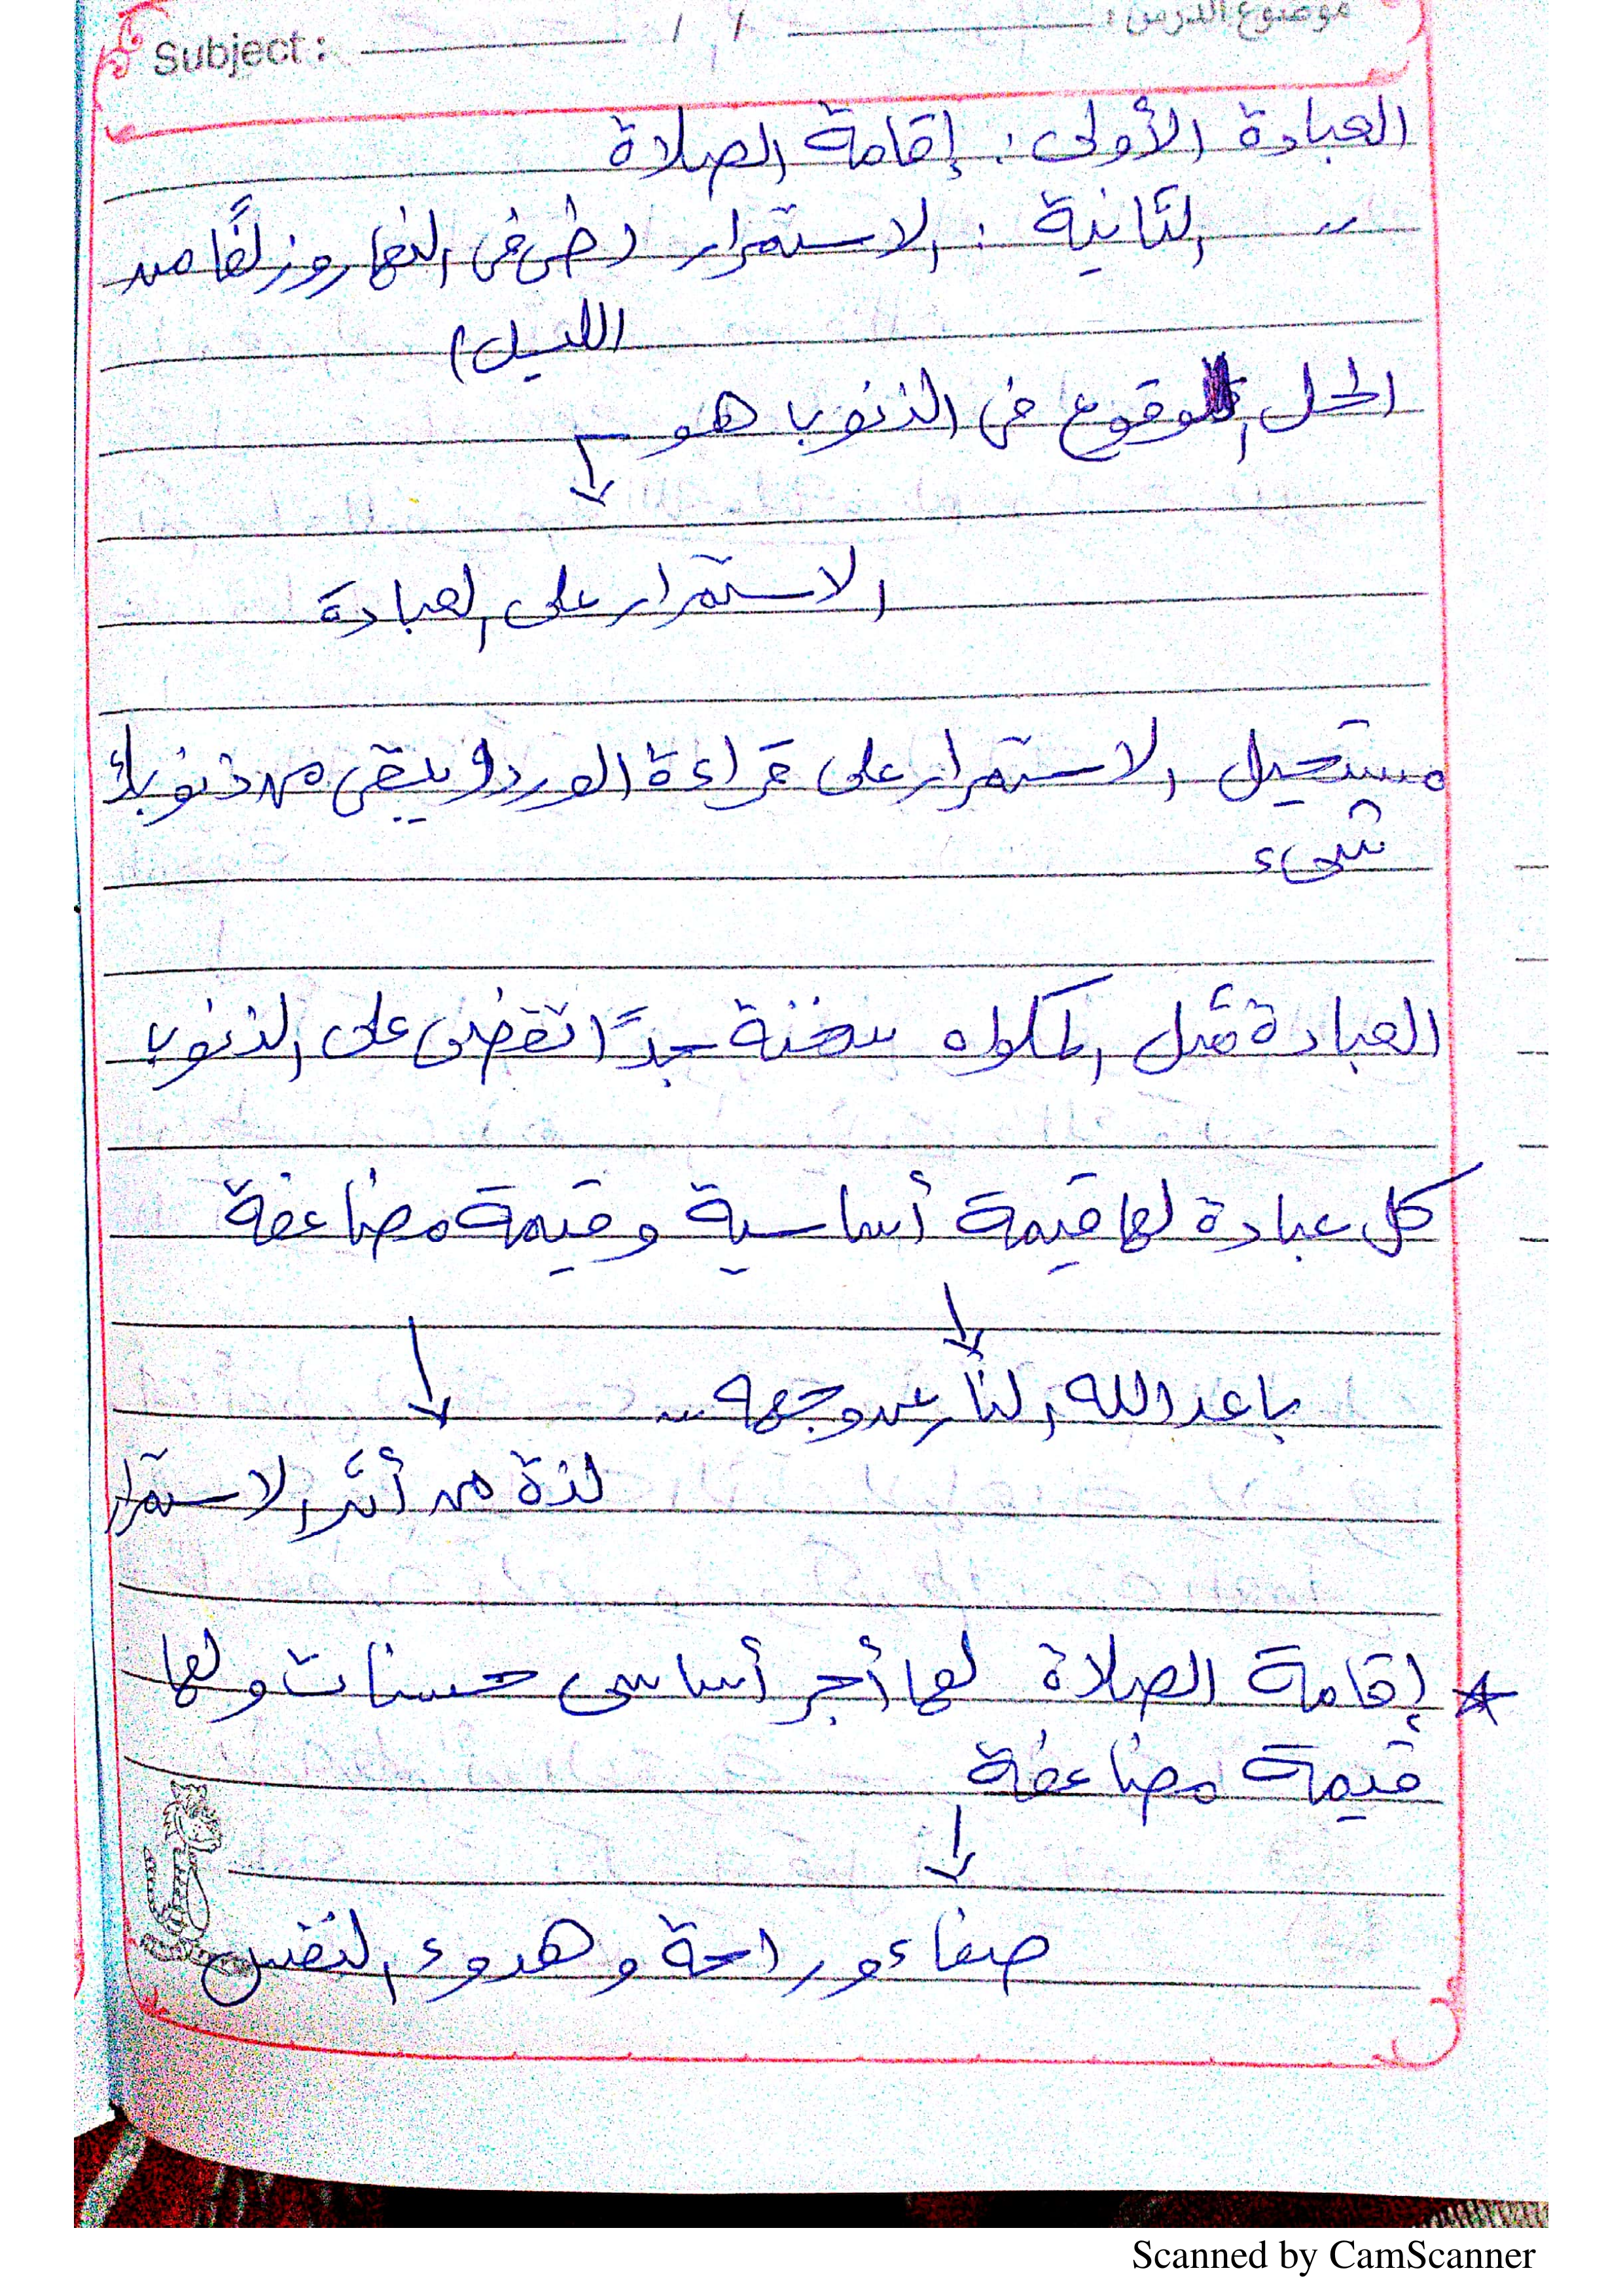 Subject : / / موضوع الدرس :
العبادة الأولى : إقامة الصلاة
〃 الثانية : الاستمرار (طرفى النهار وزلفًا من
الليل)
الحل الوقوع فى الذنوب هو
↓
الاستمرار على العبادة
مستحيل الاستمرار على قراءة الورد و يبقى من ذنوبك
شىء
العبادة مثل المكواه سخنة جدًا تقضى على الذنوب
كل عبادة لها قيمة أساسية وقيمة مضاعفة
↓ ↓
باعد الله النار عن وجهه ...
لذة من أثر الاستمرار
* إقامة الصلاة لها أجر أساسى حسنات ولها
قيمة مضاعفة
↓
صفاء وراحة وهدوء النفس
Scanned by CamScanner